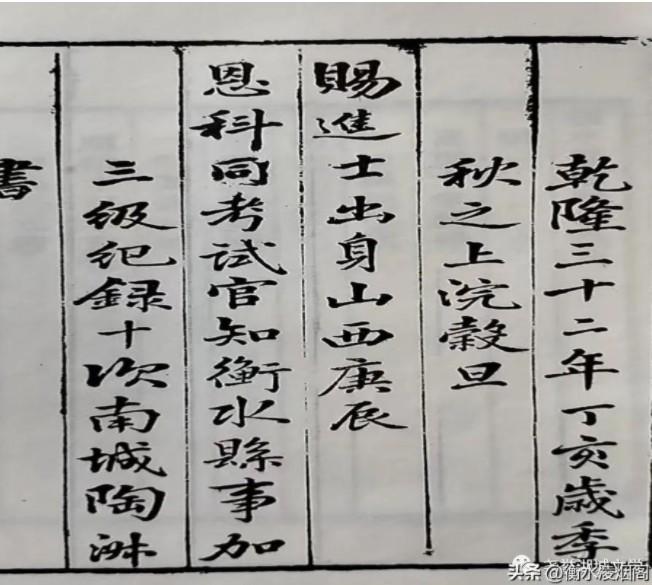 乾隆三十二年丁亥歲季
秋之上浣穀旦
賜進士出身山西庚辰
恩科同考試官知衡水縣事加
三級紀録十次南城陶淑
書
头条 @衡水